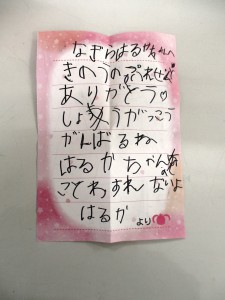 なぎらはるかちゃんへ
きのうのぷれぜんと
ありがとう♡
しょうがっこう
がんばるね
はるかちゃんの
ことわすれないよ
はるか
より